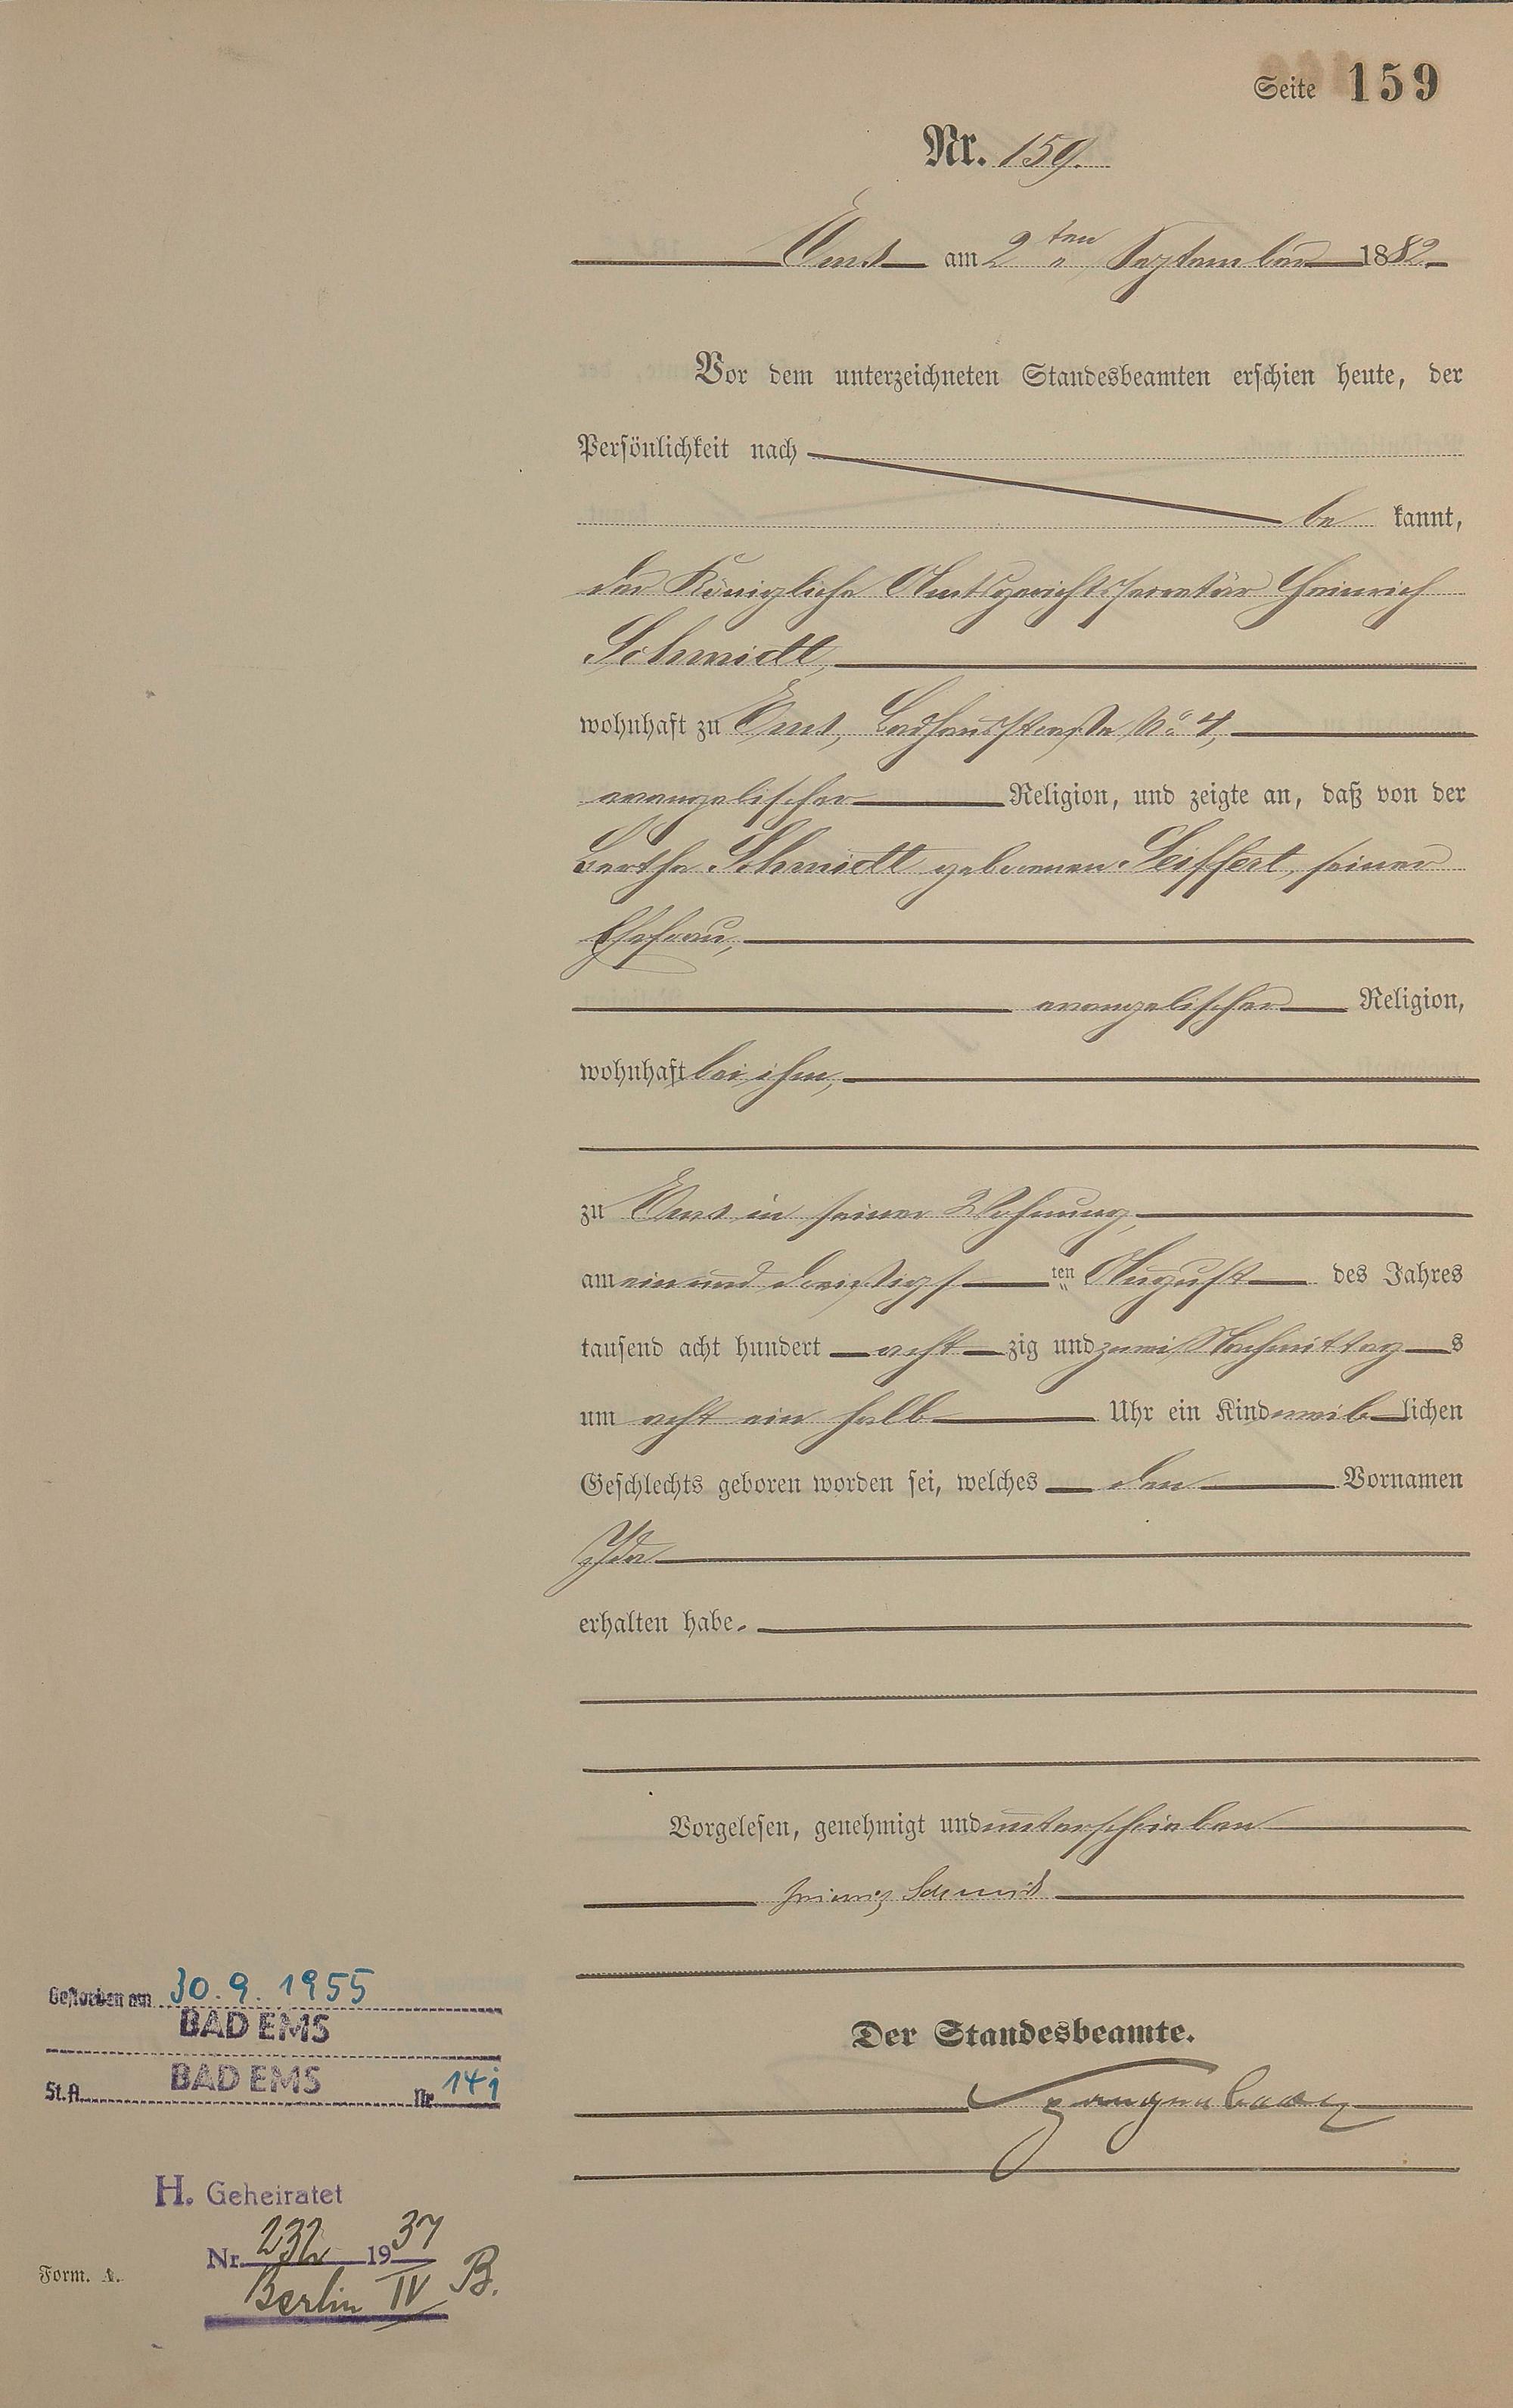 Seite 159
Nr. 159.
Ems am 2ten September 1882
Vor dem unterzeichneten Standesbeamten erschien heute, der
Persönlichkeit nach
be kannt,
der Königliche Amtsgerichtssecretär Heinrich
Schmidt,
wohnhaft zu Ems, Badhausstraße No. 4,
evangelischer Religion, und zeigte an, daß von der
Bertha Schmidt geborenen Seiffert, seiner
Ehefrau,
evangelischer Religion,
wohnhaft bei ihm,
zu Ems in seiner Wohnung,
am ein und dreißigsten August des Jahres
tausend acht hundert achtzig und zwei Nachmittags
um acht ein halb Uhr ein Kind weiblichen
Geschlechts geboren worden sei, welches den Vornamen
Ida
erhalten habe.
Vorgelesen, genehmigt und unterschrieben
Heinrich Schmidt
Der Standesbeamte.
Gestorben am 30.9.1955
BAD EMS
St.A. BAD EMS Nr. 141
H. Geheiratet
Nr. 232 1937
Berlin IV B.
Form. A.